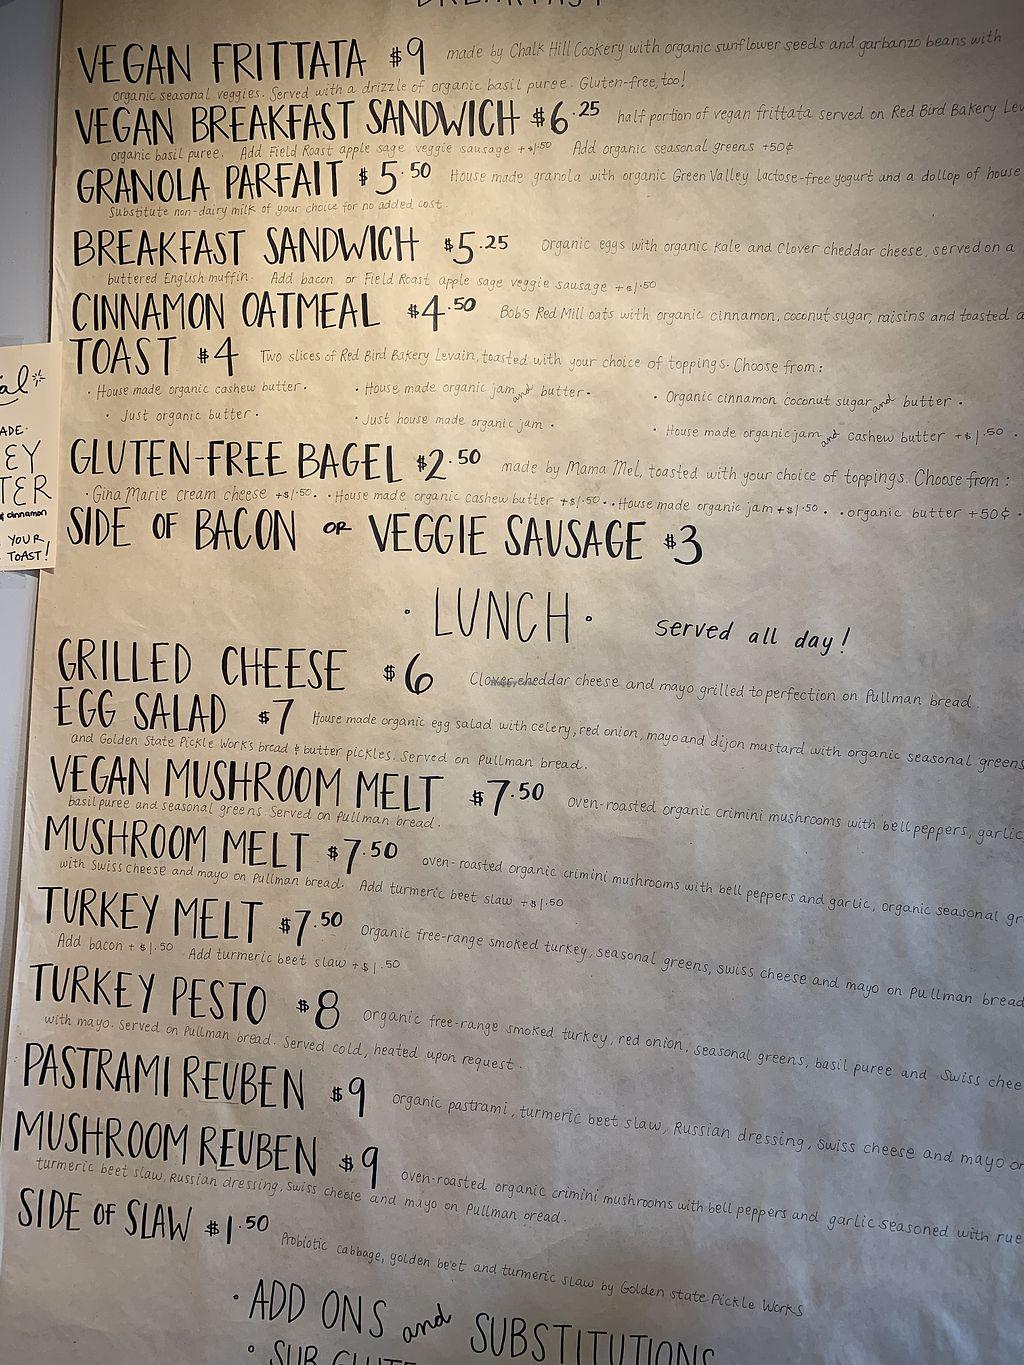 BREAKFAST
VEGAN FRITTATA $9 made by Chalk Hill Cookery with organic sunflower seeds and garbanzo beans with
organic seasonal veggies. Served with a drizzle of organic basil puree. Gluten-free, too!
VEGAN BREAKFAST SANDWICH $6.25 half portion of vegan frittata served on Red Bird Bakery Lev
organic basil puree. Add Field Roast apple sage veggie sausage +$1.50 Add organic seasonal greens +50¢
GRANOLA PARFAIT $5.50 House made granola with organic Green Valley lactose-free yogurt and a dollop of house
Substitute non-dairy milk of your choice for no added cost.
BREAKFAST SANDWICH $5.25 Organic eggs with organic kale and Clover cheddar cheese, served on a
buttered English muffin. Add bacon or Field Roast apple sage veggie sausage +$1.50
CINNAMON OATMEAL $4.50 Bob's Red Mill oats with organic cinnamon, coconut sugar, raisins and toasted a
TOAST $4 Two slices of Red Bird Bakery Levain, toasted with your choice of toppings. Choose from:
• House made organic cashew butter • • House made organic jam and butter • • Organic cinnamon coconut sugar and butter •
• Just organic butter • • Just house made organic jam • • House made organic jam and cashew butter +$1.50 •
GLUTEN-FREE BAGEL $2.50 made by Mama Mel, toasted with your choice of toppings. Choose from:
• Gina Marie cream cheese +$1.50 • • House made organic cashew butter +$1.50 • • House made organic jam +$1.50 • • organic butter +50¢ •
SIDE OF BACON OR VEGGIE SAUSAGE $3
al
ADE
EY
TER
& cinnamon
YOUR
TOAST!
• LUNCH • served all day!
GRILLED CHEESE $6 Clover cheddar cheese and mayo grilled to perfection on Pullman bread.
EGG SALAD $7 House made organic egg salad with celery, red onion, mayo and dijon mustard with organic seasonal greens
and Golden State Pickle Work's bread & butter pickles. Served on Pullman bread.
VEGAN MUSHROOM MELT $7.50 oven-roasted organic crimini mushrooms with bell peppers, garlic
basil puree and seasonal greens. Served on Pullman bread.
MUSHROOM MELT $7.50 oven-roasted organic crimini mushrooms with bell peppers and garlic, organic seasonal gr
with Swiss cheese and mayo on Pullman bread. Add turmeric beet slaw +$1.50
TURKEY MELT $7.50 Organic free-range smoked turkey, seasonal greens, swiss cheese and mayo on Pullman bread
Add bacon +$1.50 Add turmeric beet slaw +$1.50
TURKEY PESTO $8 Organic free-range smoked turkey, red onion, seasonal greens, basil puree and Swiss chee
with mayo. Served on Pullman bread. Served cold, heated upon request.
PASTRAMI REUBEN $9 organic pastrami, turmeric beet slaw, Russian dressing, Swiss cheese and mayo on
MUSHROOM REUBEN $9 oven-roasted organic crimini mushrooms with bell peppers and garlic seasoned with rue
turmeric beet slaw, Russian dressing, Swiss cheese and mayo on Pullman bread.
SIDE OF SLAW $1.50 Probiotic cabbage, golden beet and turmeric slaw by Golden State Pickle Works
• ADD ONS and SUBSTITUTIONS
• SUB GLUTE